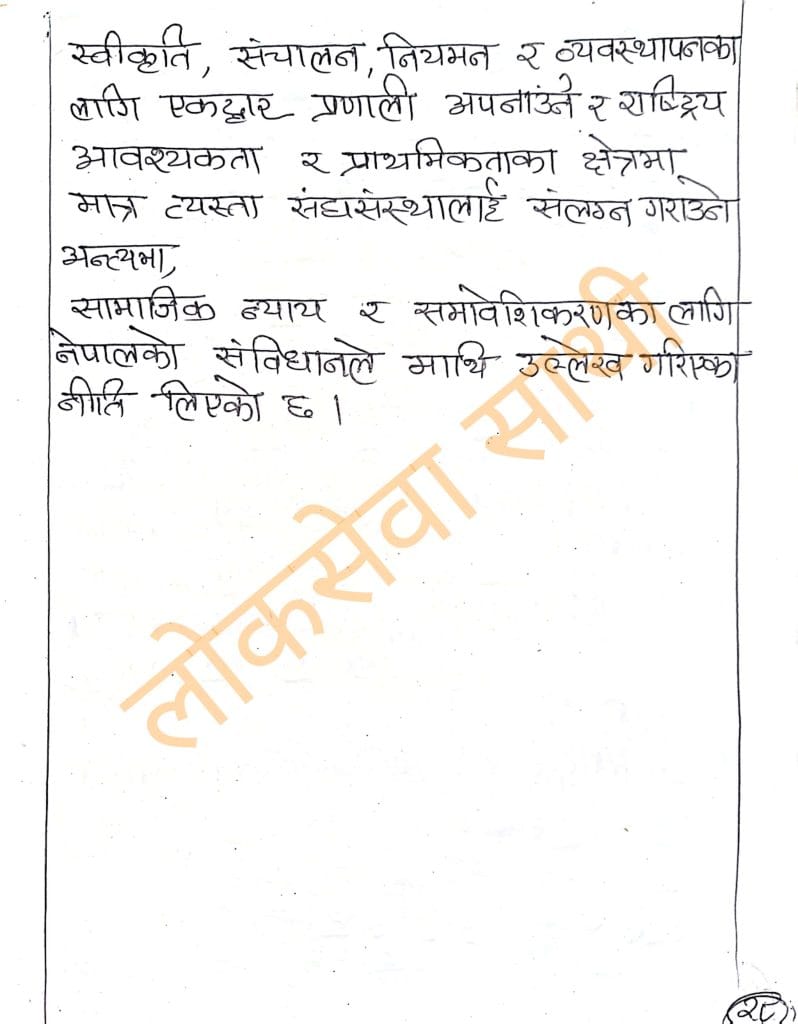 स्वीकृति, संचालन, नियमन र व्यवस्थापनका
लागि एकद्वार प्रणाली अपनाउने र राष्ट्रिय
आवश्यकता र प्राथमिकताका क्षेत्रमा
मात्र त्यस्ता संघसंस्थालाई संलग्न गराउने
अन्त्यमा,
सामाजिक न्याय र समावेशिकरणका लागि
नेपालको संविधानले माथि उल्लेख गरिएका
नीति लिएको छ ।
लोकसेवा साथी